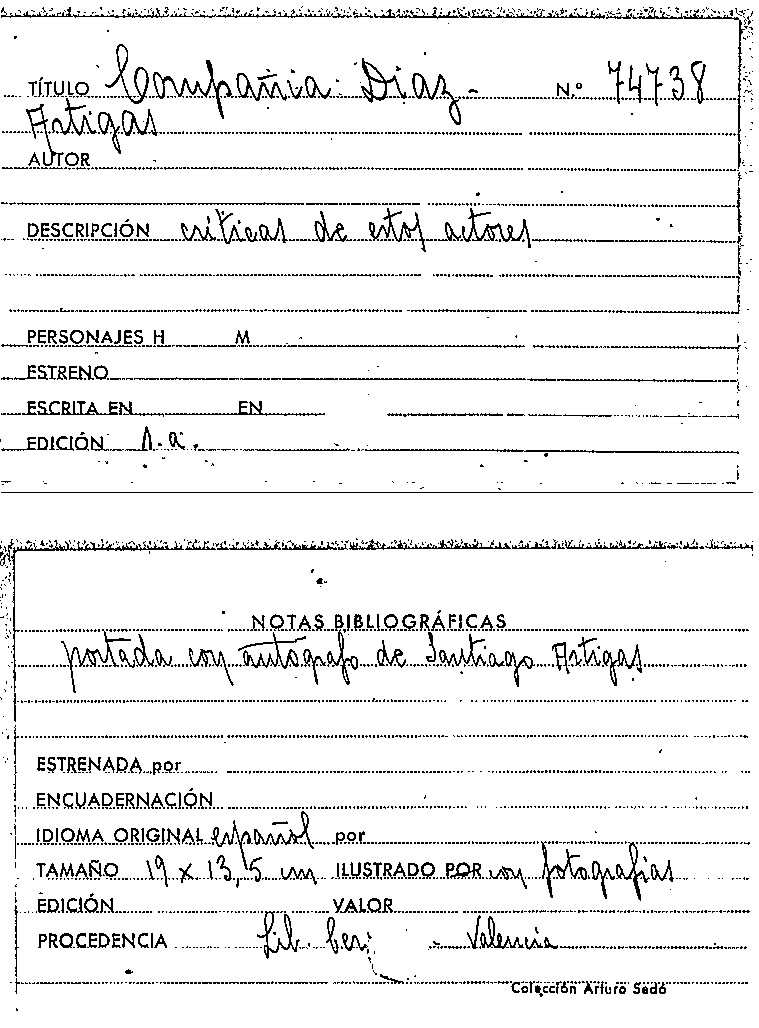 TÍTULO Compañia Diaz- N.º 74738
Artigas
AUTOR
DESCRIPCIÓN críticas de estos actores
PERSONAJES H M
ESTRENO
ESCRITA EN EN
EDICIÓN s.a.
NOTAS BIBLIOGRÁFICAS
portada con autógrafo de Santiago Artigas
ESTRENADA por
ENCUADERNACIÓN
IDIOMA ORIGINAL español por
TAMAÑO 19 x 13,5 cm ILUSTRADO POR con fotografías
EDICIÓN VALOR
PROCEDENCIA Lib. - Valencia
Colección Arturo Sedó